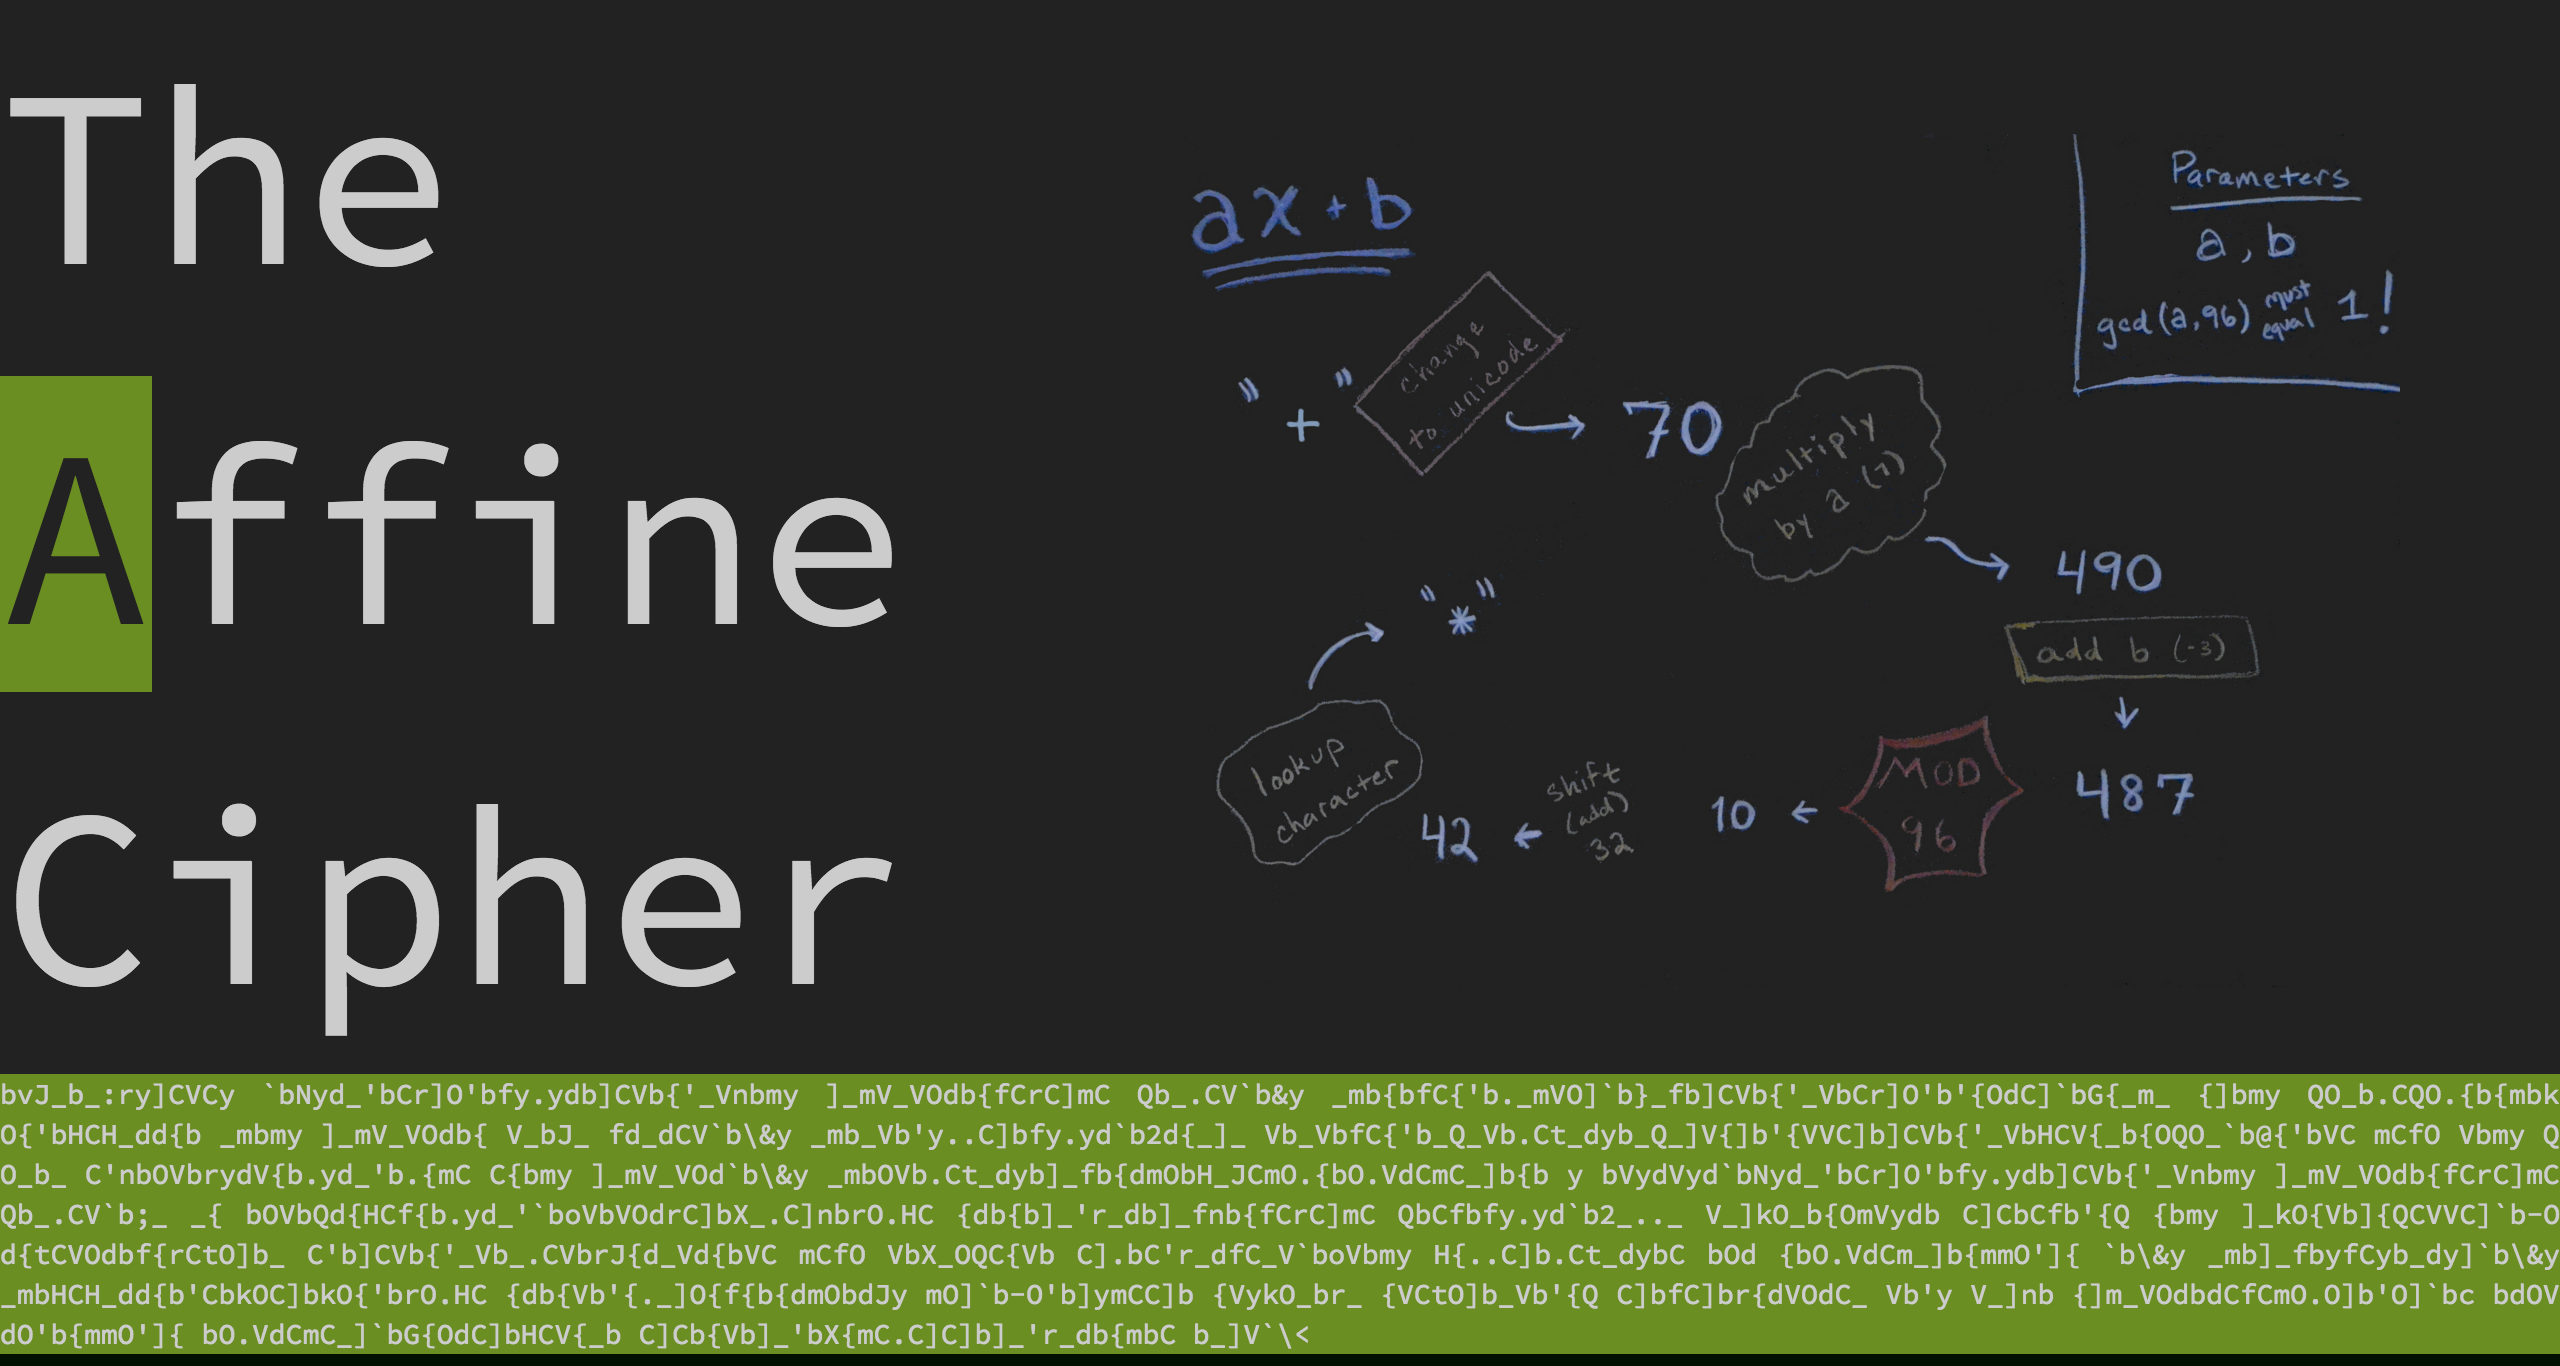 The
Affine
Cipher
ax+b
Parameters
a, b
gcd(a,96) must equal 1!
"+"
change
to unicode
70
multiply
by a (7)
490
add b (-3)
487
MOD
96
10
shift
(add)
32
42
lookup
character
"*"
bvJ_b_:ry]CVCy `bNyd_'bCr]O'bfy.ydb]CVb{'_Vnbmy ]_mV_VOdb{fCrC]mC Qb_.CV`b&y _mb{bfC{'b._mVO]`b}_fb]CVb{'_VbCr]O'b'{OdC]`bG{_m_ {]bmy QO_b.CQO.{b{mbk
O{'bHCH_dd{b _mbmy ]_mV_VOdb{ V_bJ_ fd_dCV`b\&y _mb_Vb'y..C]bfy.yd`b2d{_]_ Vb_VbfC{'b_Q_Vb.Ct_dyb_Q_]V{]b'{VVC]b]CVb{'_VbHCV{_b{OQO_`b@{'bVC mCfO Vbmy Q
O_b_ C'nbOVbrydV{b.yd_'b.{mC C{bmy ]_mV_VOd`b\&y _mbOVb.Ct_dyb]_fb{dmObH_JCmO.{bO.VdCmC_]b{b y bVydVyd`bNyd_'bCr]O'bfy.ydb]CVb{'_Vnbmy ]_mV_VOdb{fCrC]mC
Qb_.CV`b;_ _{ bOVbQd{HCf{b.yd_'`boVbVOdrC]bX_.C]nbrO.HC {db{b]_'r_db]_fnb{fCrC]mC QbCfbfy.yd`b2_.._ V_]kO_b{OmVydb C]CbCfb'{Q {bmy ]_kO{Vb]{QCVVC]`b-O
d{tCVOdbf{rCtO]b_ C'b]CVb{'_Vb_.CVbrJ{d_Vd{bVC mCfO VbX_OQC{Vb C].bC'r_dfC_V`boVbmy H{..C]b.Ct_dybC bOd {bO.VdCm_]b{mmO']{ `b\&y _mb]_fbyfCyb_dy]`b\&y
_mbHCH_dd{b'CbkOC]bkO{'brO.HC {db{Vb'{._]O{f{b{dmObdJy mO]`b-O'b]ymCC]b {VykO_br_ {VCtO]b_Vb'{Q C]bfC]br{dVOdC_ Vb'y V_]nb {]m_VOdbdCfCmO.O]b'O]`bc bdOV
dO'b{mmO']{ bO.VdCmC_]`bG{OdC]bHCV{_b C]Cb{Vb]_'bX{mC.C]C]b]_'r_db{mbC b_]V`\<